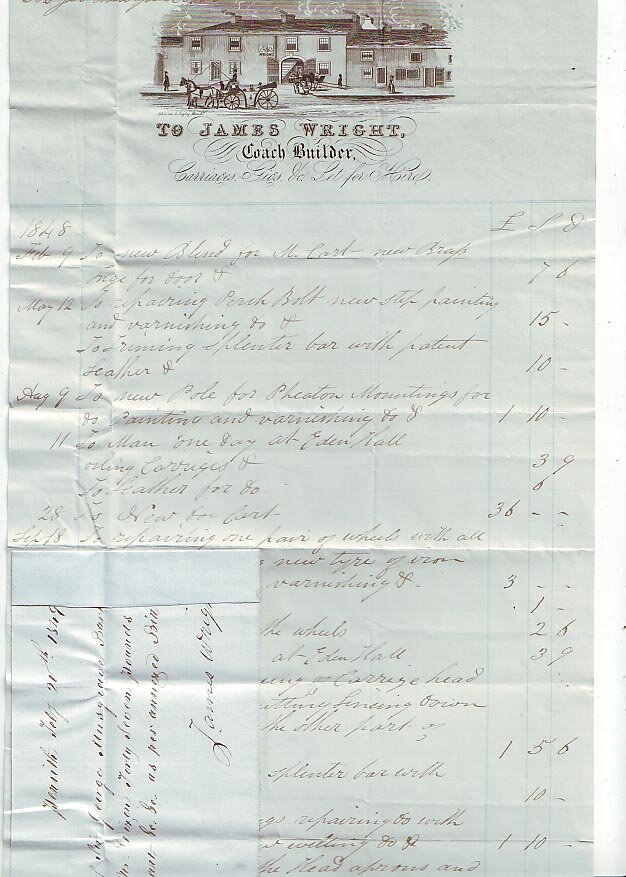 TO JAMES WRIGHT,
Coach Builder,
Carriages, Gigs, &c. Let for Hire.
1848 £ S D
Feb 9 To new Blind for M. Cart new Brass
for door & 7 6
May 12 To repairing Perch Bolt new step painting
and varnishing do & 15 -
To triming splenter bar with patent
Leather & 10 -
Aug 9 To new Pole for Pheaton Mountings for
do Painting and varnishing do & 1 10 -
11 To Man one day at Eden Hall
oiling Carriges & 3 9
To Leather for do 6
28 To New dog Cart 36 - -
Sep 18 To repairing one pair of wheels with all
new tyre of iron
varnishing & 3 - -
1 -
the wheels 2 6
at Eden Hall 3 9
Carrige head
Down
the other part of
1 5 6
splenter bar with
10 -
repairing do with
welting do & 1 10 -
the Head aprons and
Penrith Feby 21st 1849
Sir George Musgrave Bart
Forty Seven Pounds
as per annexed Bill
James Wright